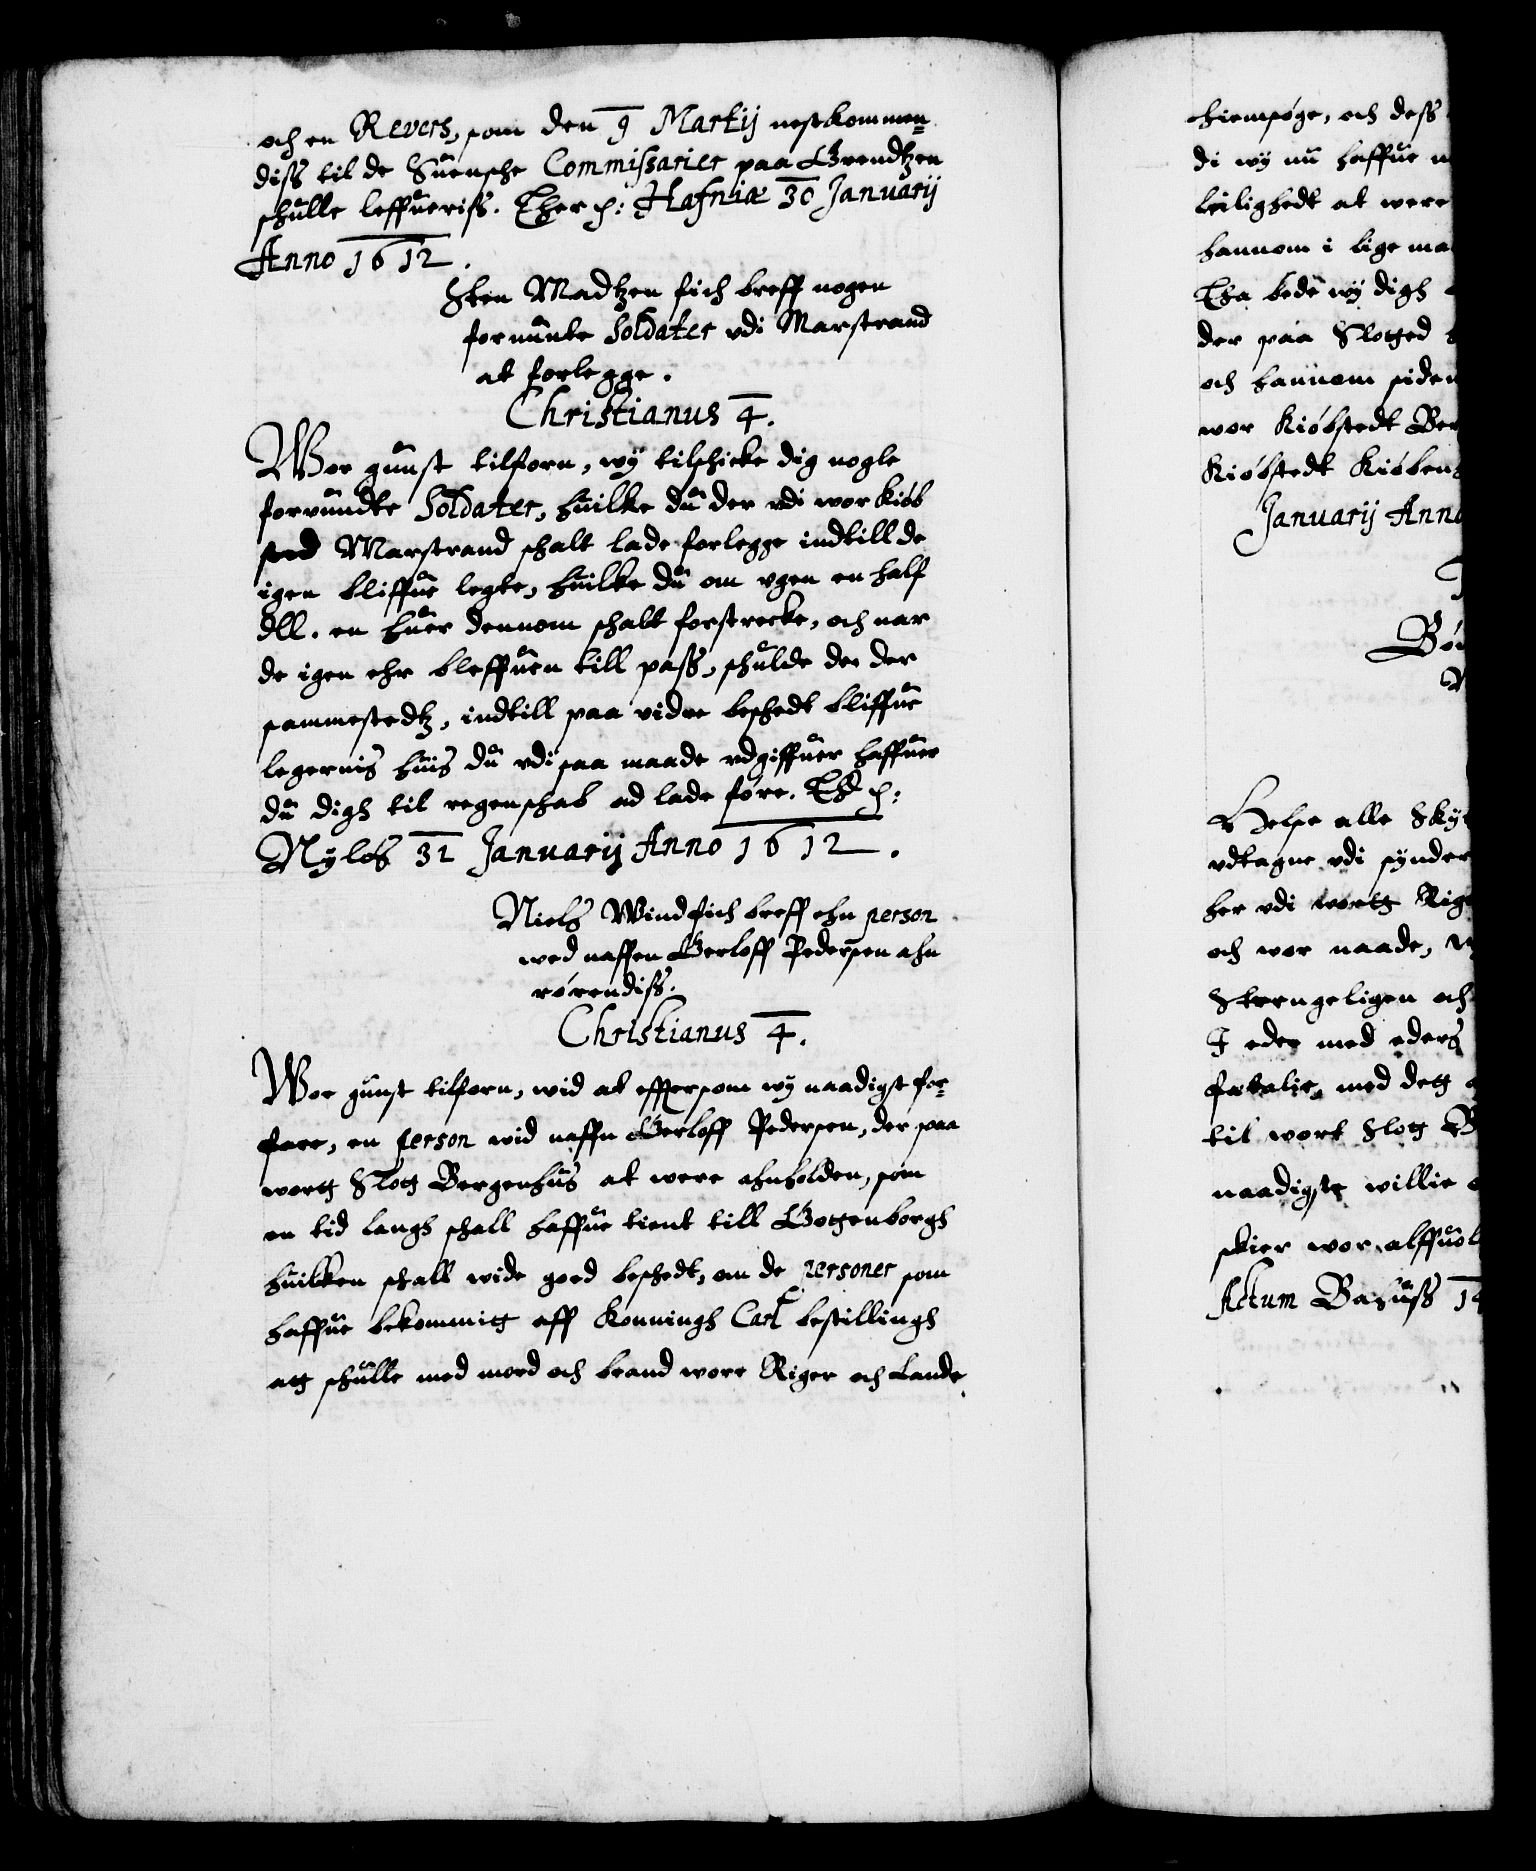 och en Revers, som den 9 Martij nestkommen-
diss til de Suensche Commissarier paa Grendtzen
schulle leffueriss. Ther p: Hafniæ 30 Januarij
Anno 1612.
Sten Madtzen fich breff nogen
foruunte Soldater vdi Marstrand
at forlegge.
Christianus 4.
Wor gunst tilforn, wy tilschicke dig nogle
foruundte Soldater, huilke du der vdi wor Kiøb
sted Marstrand schalt lade forlegge indtill de
igen bliffue legte, huilke du om vgen en half
dll. en huer dennom schalt forstrecke, och nar
de igen ehr bleffuen till pass, schulde de der
sammestedtz, indtill paa vidre beschedt bliffue
legernis huis du vdi saa maade vdgiffuer haffuer
du digh til regenschab ad lade føre. Thd p:
Nyløs 31 Januarij Anno 1612.
Niels Wind fich breff ehn person
wed naffen Gerloff Pedersen ahn
rørendiss.
Christianus 4.
Wor gunst tilforn, wid at effersom wy naadigst for-
fare, en person wid naffn Gerloff Pedersen, der paa
wortt Slott Bergenhus at were ahnholden, som
en tid langh schall haffue tient till Gottenborgh
huilken schall wide goed beschedt, om de personer som
haffue bekommitt aff Konningh Carl bestillingh
att schulle med mord och brand wore Riger och Lande
hiemsøge, och dess
di wy nu haffue
leilighedt at were
hannom i lige
Tha bede wy digh
der paa Slotted
och hannom siden
wor Kiøbstedt
Kiøbstedt
Januarij
Helse alle
vdtagne vdi
her vdi wortt
och wor naade,
Strengeligen och
I eder med eders
fatalie, med dett
til wort Slott
naadigste willie
skier wor
Actum Bahuss